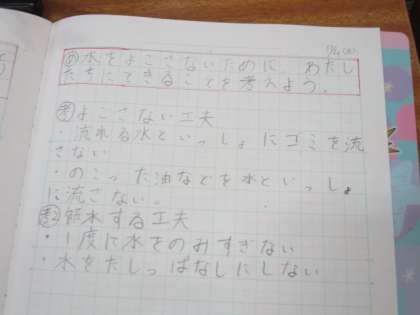 7/4(木)
め 水をよごさないために、わたし
たちにできることを考えよう。
考 よごさない工夫
・流れる水といっしょにゴミを流
さない
・のこった油などを水といっしょ
に流さない。
考2 節水する工夫
・1度に水をのみすぎない
・水をだしっぱなしにしない